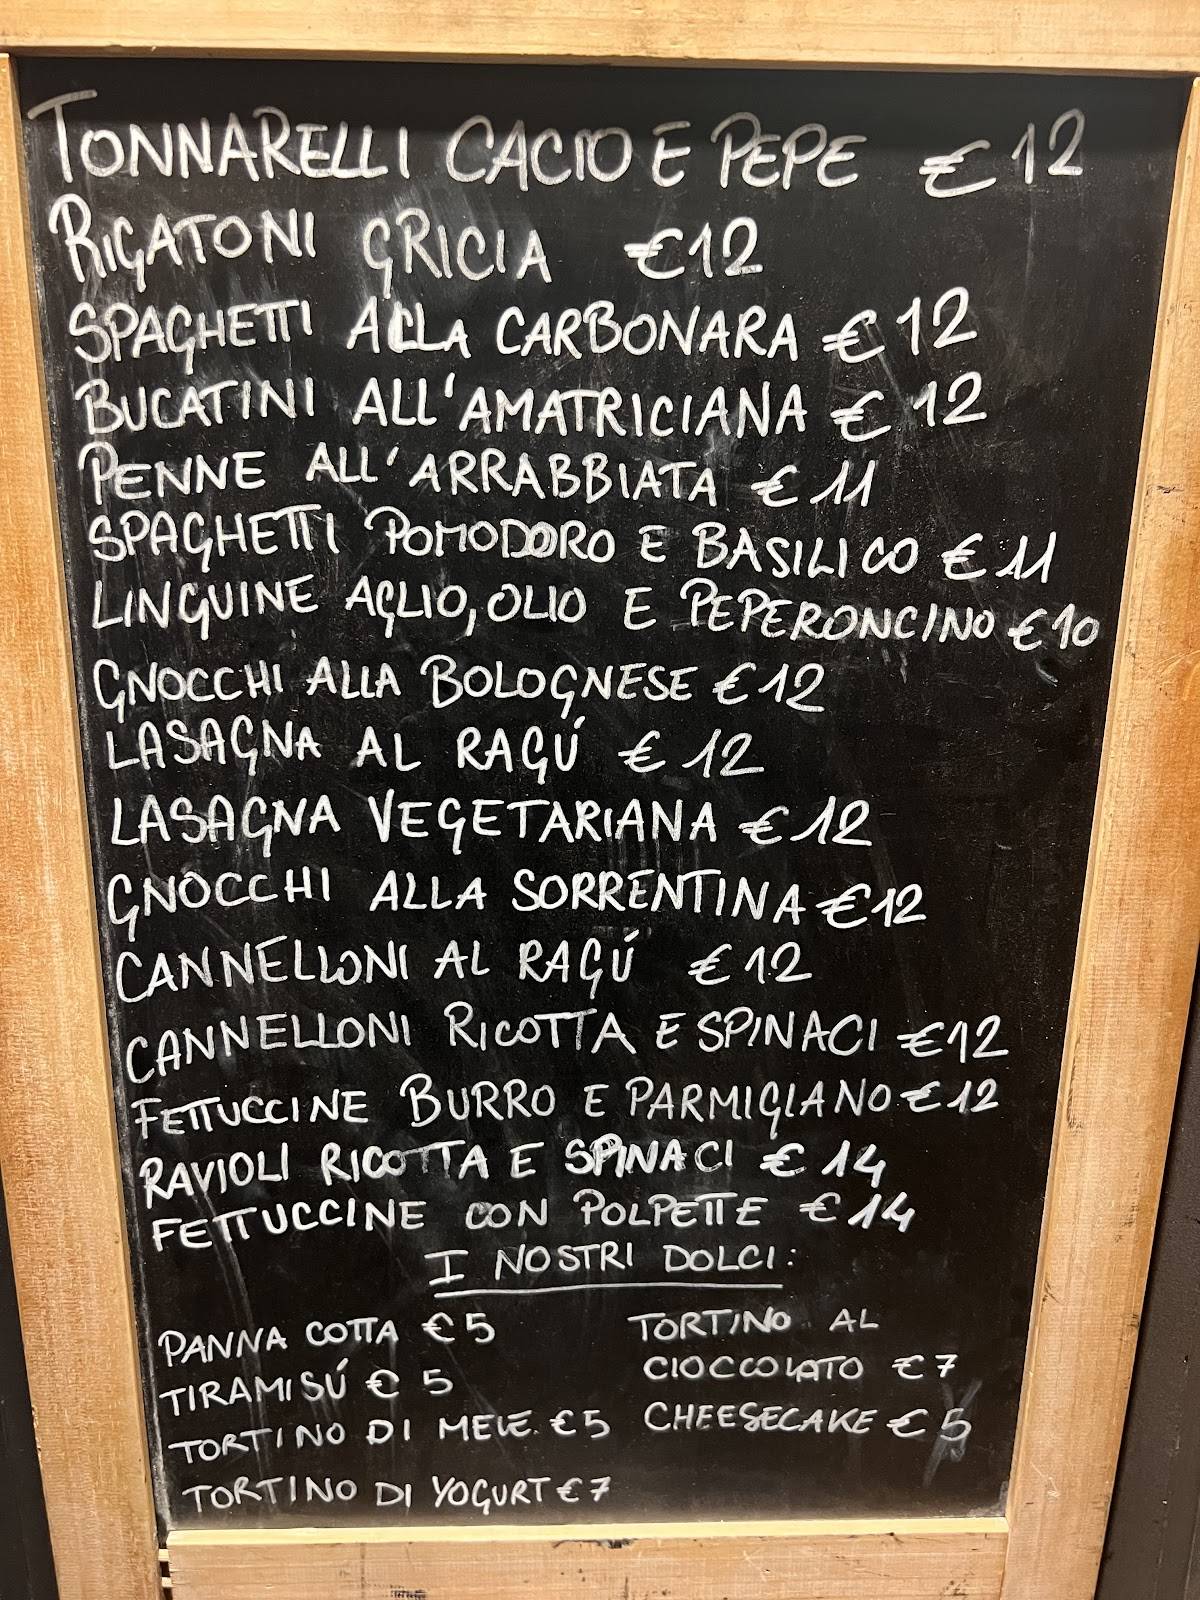 TONNARELLI CACIO E PEPE €12
RIGATONI GRICIA €12
SPAGHETTI ALLA CARBONARA €12
BUCATINI ALL'AMATRICIANA €12
PENNE ALL'ARRABBIATA €11
SPAGHETTI POMODORO E BASILICO €11
LINGUINE AGLIO, OLIO E PEPERONCINO €10
GNOCCHI ALLA BOLOGNESE €12
LASAGNA AL RAGÚ €12
LASAGNA VEGETARIANA €12
GNOCCHI ALLA SORRENTINA €12
CANNELLONI AL RAGÚ €12
CANNELLONI RICOTTA E SPINACI €12
FETTUCCINE BURRO E PARMIGIANO €12
RAVIOLI RICOTTA E SPINACI €14
FETTUCCINE CON POLPETTE €14
I NOSTRI DOLCI:
PANNA COTTA €5
TIRAMISÚ €5
TORTINO DI MELE €5
TORTINO DI YOGURT €7
TORTINO AL
CIOCCOLATO €7
CHEESECAKE €5